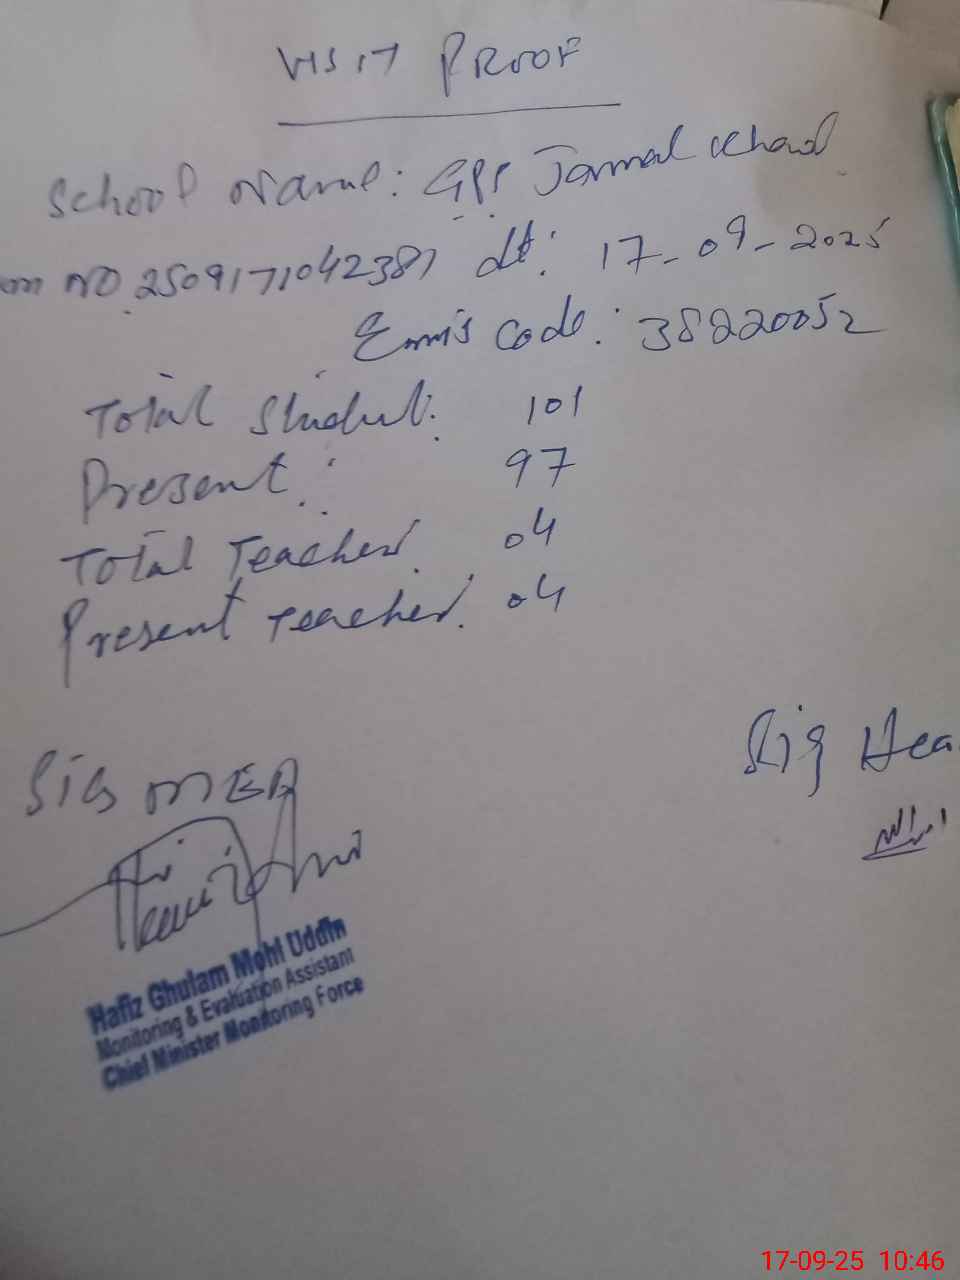 VISIT PROOF
School Name: GPS Jamal
NO 2509171042387 dt: 17-09-2025
Emis Code: 38220052
Total Student: 101
Present: 97
Total Teacher 04
Present teacher. 04
Sig Hea
SIG MEA
Hafiz Ghulam Mohi Uddin
Monitoring & Evaluation Assistant
Chief Minister Monitoring Force
17-09-25 10:46